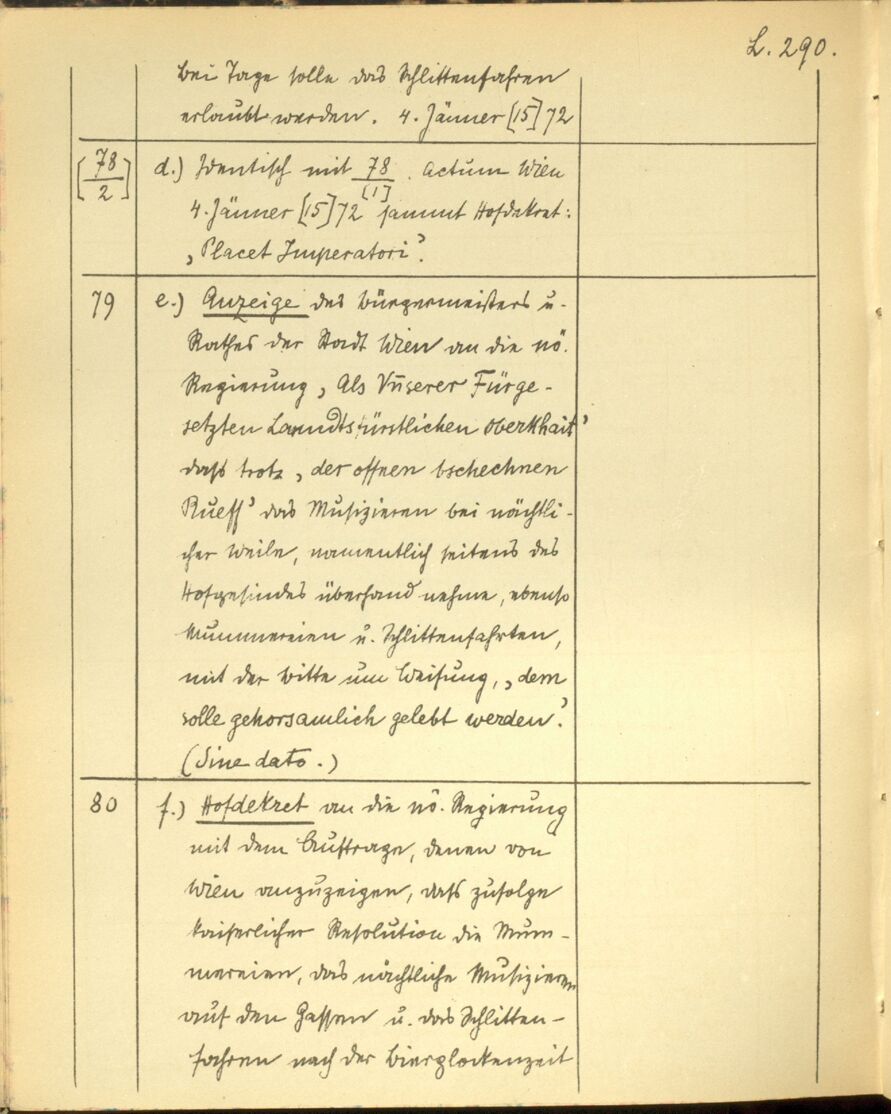 L. 290.
bei Tage solle das Schlittenfahren
erlaubt werden. 4. Jänner [15]72
[78/2] d.) Identisch mit 78/[1]. Actum Wien
4. Jänner [15]72 sammt Hofdekret:
„Placet Imperatori“.
79 e.) Anzeige des Bürgermeisters u.
Rathes der Stadt Wien an die nö.
Regierung „Als Vnserer Fürge-
setzten Lanndtsfürstlichen Oberkhait“
daß trotz „der offnen bschechnen
Rueff“ das Musizieren bei nächtli-
cher Weile, namentlich seitens des
Hofgesindes überhand nehme, ebenso
Mummereien u. Schlittenfahrten,
mit der Bitte um Weisung, „dem
solle gehorsamlich gelebt werden“.
(Sine dato.)
80 f.) Hofdekret an die nö. Regierung
mit dem Auftrage, denen von
Wien anzuzeigen, daß zufolge
kaiserlicher Resolution die Mum-
mereien, das nächtliche Musizieren
auf den Gassen u. das Schlitten-
fahren nach der Bierglockenzeit